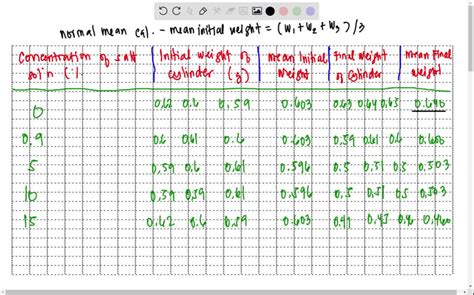 normal mean cal. - mean initial weight = (W1 + W2 + W3) /3
Concentration of salt Initial weight of mean Initial Final weight mean Final
soln (%. cylinder (g) weight of cylinder weight
0 0.62 0.6 0.59 0.603 0.63 0.64 0.65 0.640
0.9 0.6 0.61 0.6 0.603 0.59 0.61 0.6 0.600
5 0.59 0.6 0.61 0.596 0.5 0.51 0.5 0.503
10 0.59 0.59 0.61 0.596 0.5 0.51 0.5 0.503
15 0.62 0.6 0.59 0.603 0.47 0.45 0.460